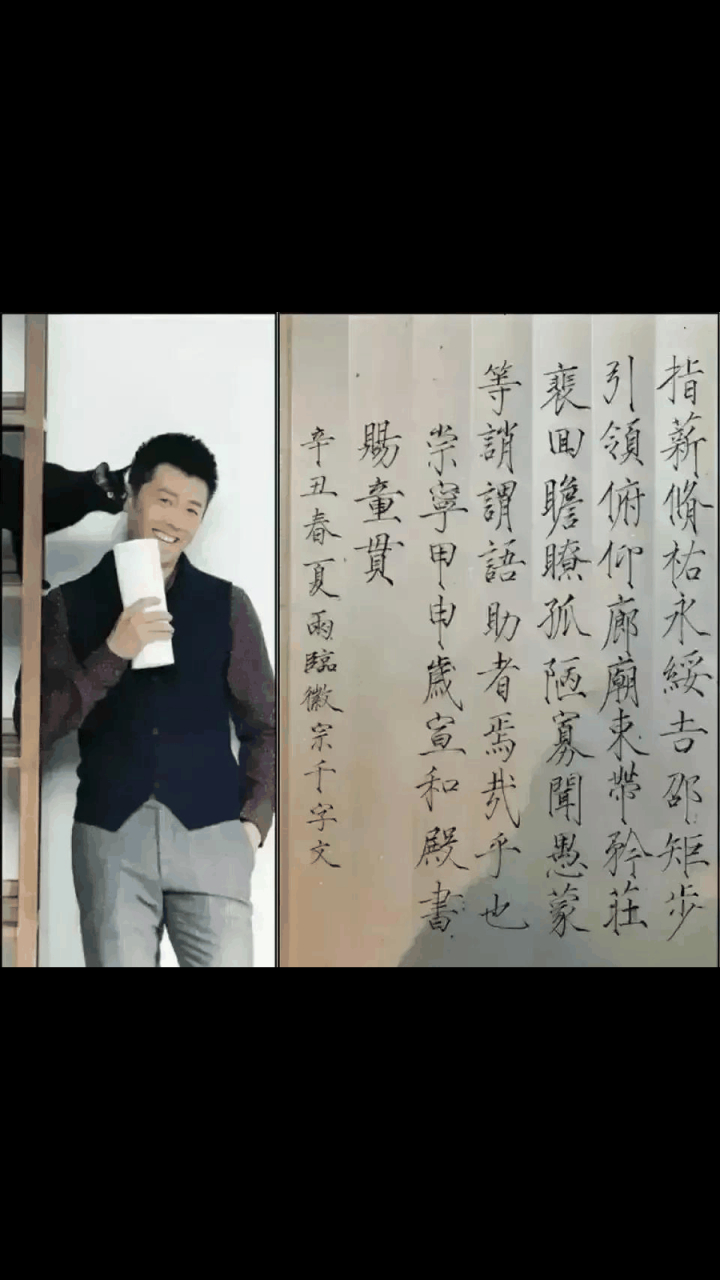 指薪脩祜永綏吉邵矩步
引領俯仰廊廟束帶矜莊
裴回瞻瞭孤陋寡聞愚蒙
等誚謂語助者焉哉乎也
崇寧甲申歲宣和殿書
賜童貫
辛丑春夏雨臨徽宗千字文